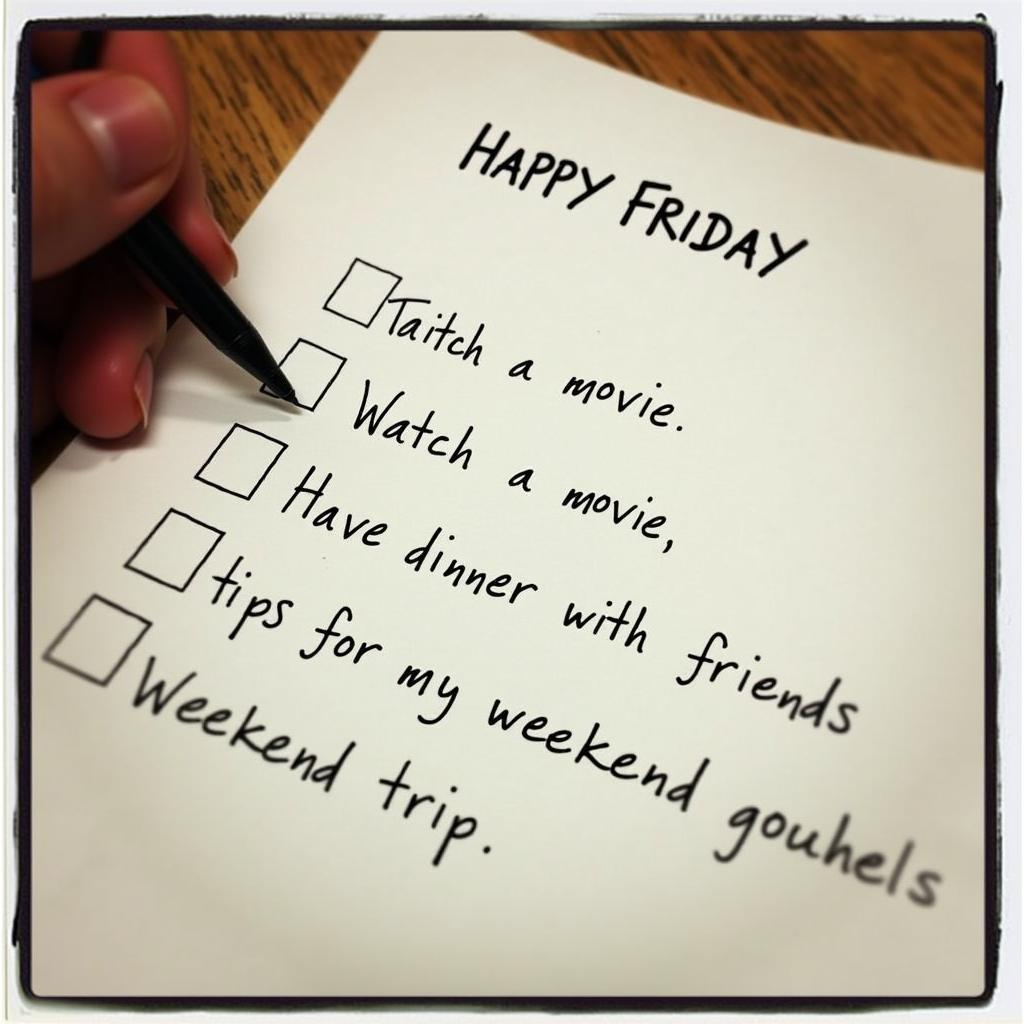 HAPPY FRIDAY
Taitch a movie.
Watch a movie,
Have dinner with friends
tips for my weekend gouhels
Weekend trip.